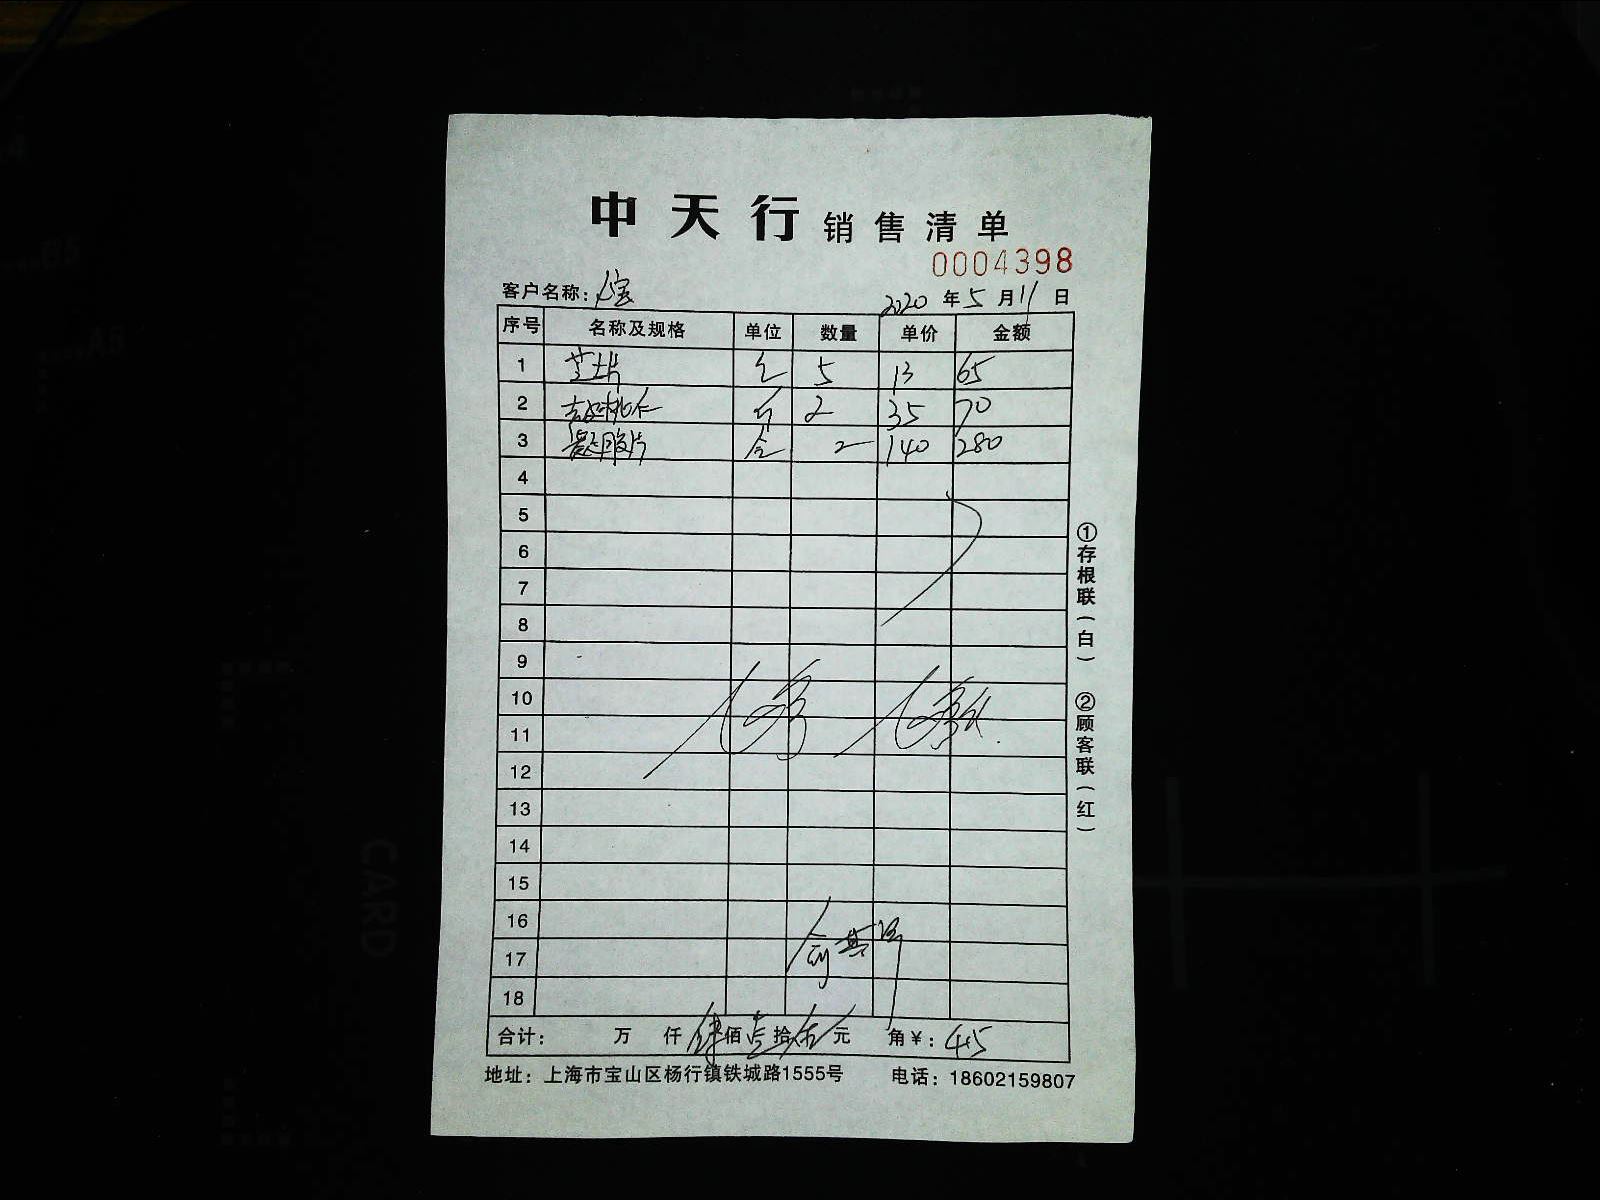 中天行销售清单
0004398
客户名称：宝
2020 年 5 月 11 日
序号 名称及规格 单位 数量 单价 金额
1 芝士片 包 5 13 65
2 核桃仁 斤 2 35 70
3 凝胶片 盒 2 140 280
4
5
6
7
8
9
10
11
12
13
14
15
16
17
18
合计： 万 仟 肆 佰 壹 拾 伍 元 角 ¥： 415
地址：上海市宝山区杨行镇铁城路1555号 电话：18602159807
①存根联（白） ②顾客联（红）